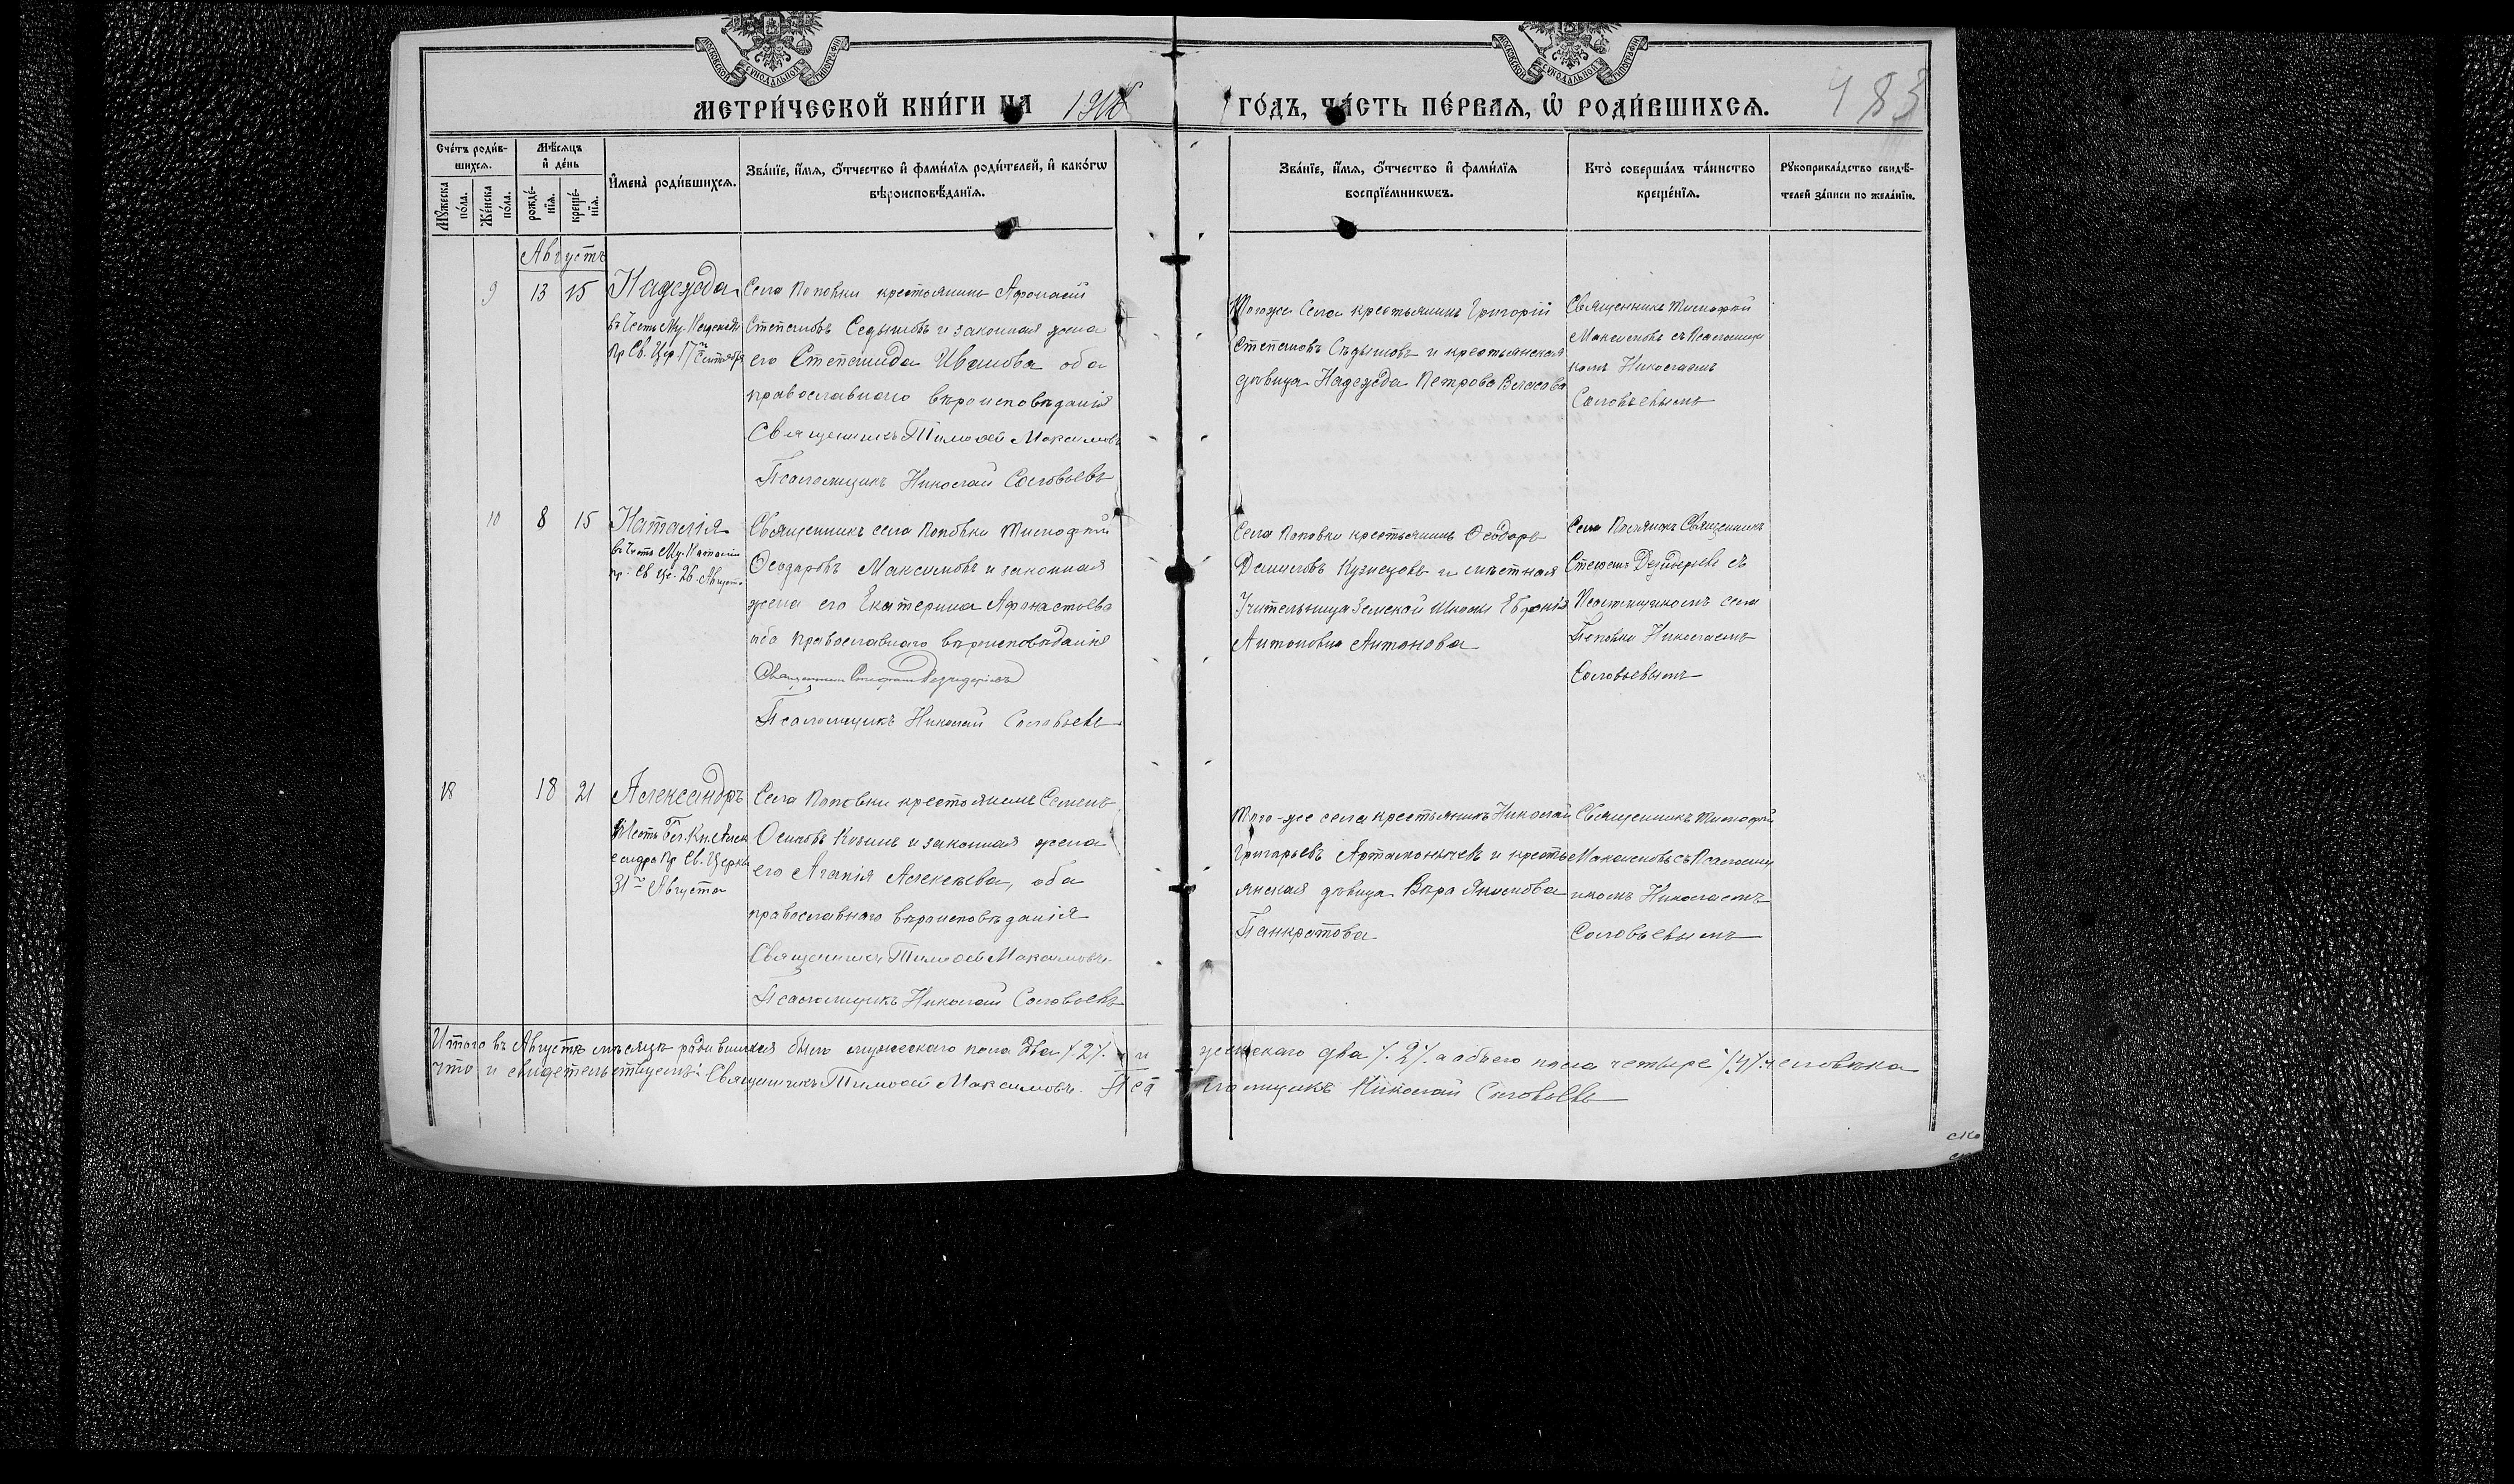 МОСКОВСКОЙ СѴНОДАЛЬНОЙ ТИПОГРАФІИ
МОСКОВСКОЙ СѴНОДАЛЬНОЙ ТИПОГРАФІИ
МЕТРИ́ЧЕСКОЙ КНИ́ГИ НА
ГО́ДЪ, ЧА́СТЬ ПЕ́РВАЯ, Ѡ҆ РОДИ́ВШИХСЯ.
483
Сче́тъ роди́в-
шихся.
Мѣ́сяцъ
и҆ де́нь
Мꙋ́жеска
по́ла.
Же́нска
по́ла.
рожде́-
нїя.
креще́-
нїя.
И҆мена̀ роди́вшихся.
Зва́нїе, и҆́мя, ѻ҆́тчество и҆ фами́лїя роди́телей, и҆ како́гѡ
вѣроисповѣ́данїя.
Зва́нїе, и҆́мя, ѻ҆́тчество и҆ фами́лїя
воспрїе́мникѡвъ.
Кто̀ соверша́лъ та́инство
креще́нїя.
Рꙋкоприкла́дство свидѣ́-
телей за́писи по жела́нїю.
Августъ
9 13 15 Надежда
въ Честь Му.
Пр. Св. Цер. 17го Сентября
Села Поповки крестьянинъ Афанасій
Степановъ Седышовъ и законная жена
его Степанида Иванова оба
православнаго вѣроисповѣданія
Священникъ Тимоѳей Максимовъ
Псаломщикъ Николай Соловьевъ
Тогоже Села крестьянинъ Григорій
Степановъ Сѣдышовъ и крестьянская
дѣвица Надежда Петрова Власова
Священникъ Тимофей
Максимовъ съ Псаломщи
комъ Николаемъ
Соловьевымъ
10 8 15 Наталія
въ Честь Му. Наталіи
пр. Св. Це. 26 Августа
Священникъ села Поповки Тимофей
Ѳеодоровъ Максимовъ и законная
жена его Екатерина Афанасьева
оба православнаго вѣроисповѣданія
Священникъ Стефанъ Дезидерьевъ
Псаломщикъ Николай Соловьевъ
Села Поповки крестьянинъ Ѳеодоръ
Даниловъ Кузнецовъ и мѣстная
Учительница Земской Школы
Антоновна Антонова
Села Священникъ
Стефанъ Дезидерьевъ съ
Псаломщикомъ села
Поповки Николаемъ
Соловьевымъ
18 18 21 Александръ
въ Честь Бл. Кн. Алек
сандра Пр. Св. Церковь
31го Августа
Села Поповки крестьянинъ Семенъ
Осиповъ Козинъ и законная жена
его Агапія Алексѣева, оба
православнаго вѣроисповѣданія
Священникъ Тимоѳей Максимовъ.
Псаломщикъ Николай Соловьевъ
Того-же села крестьянинъ Николай
Григорьевъ Артамонычевъ и кресть
янская дѣвица Вѣра Якимова
Панкратова
Священникъ Тимофей
Максимовъ съ Псаломщ
икомъ Николаемъ
Соловьевымъ
Итого въ Августѣ мѣсяцѣ родившихся было мужескаго пола два /.2/. и женскаго два /.2/. а обоего пола четыре /.4/. человѣка
что и свидетельствуемъ: Священникъ Тимоѳей Максимовъ. Псаломщикъ Николай Соловьевъ